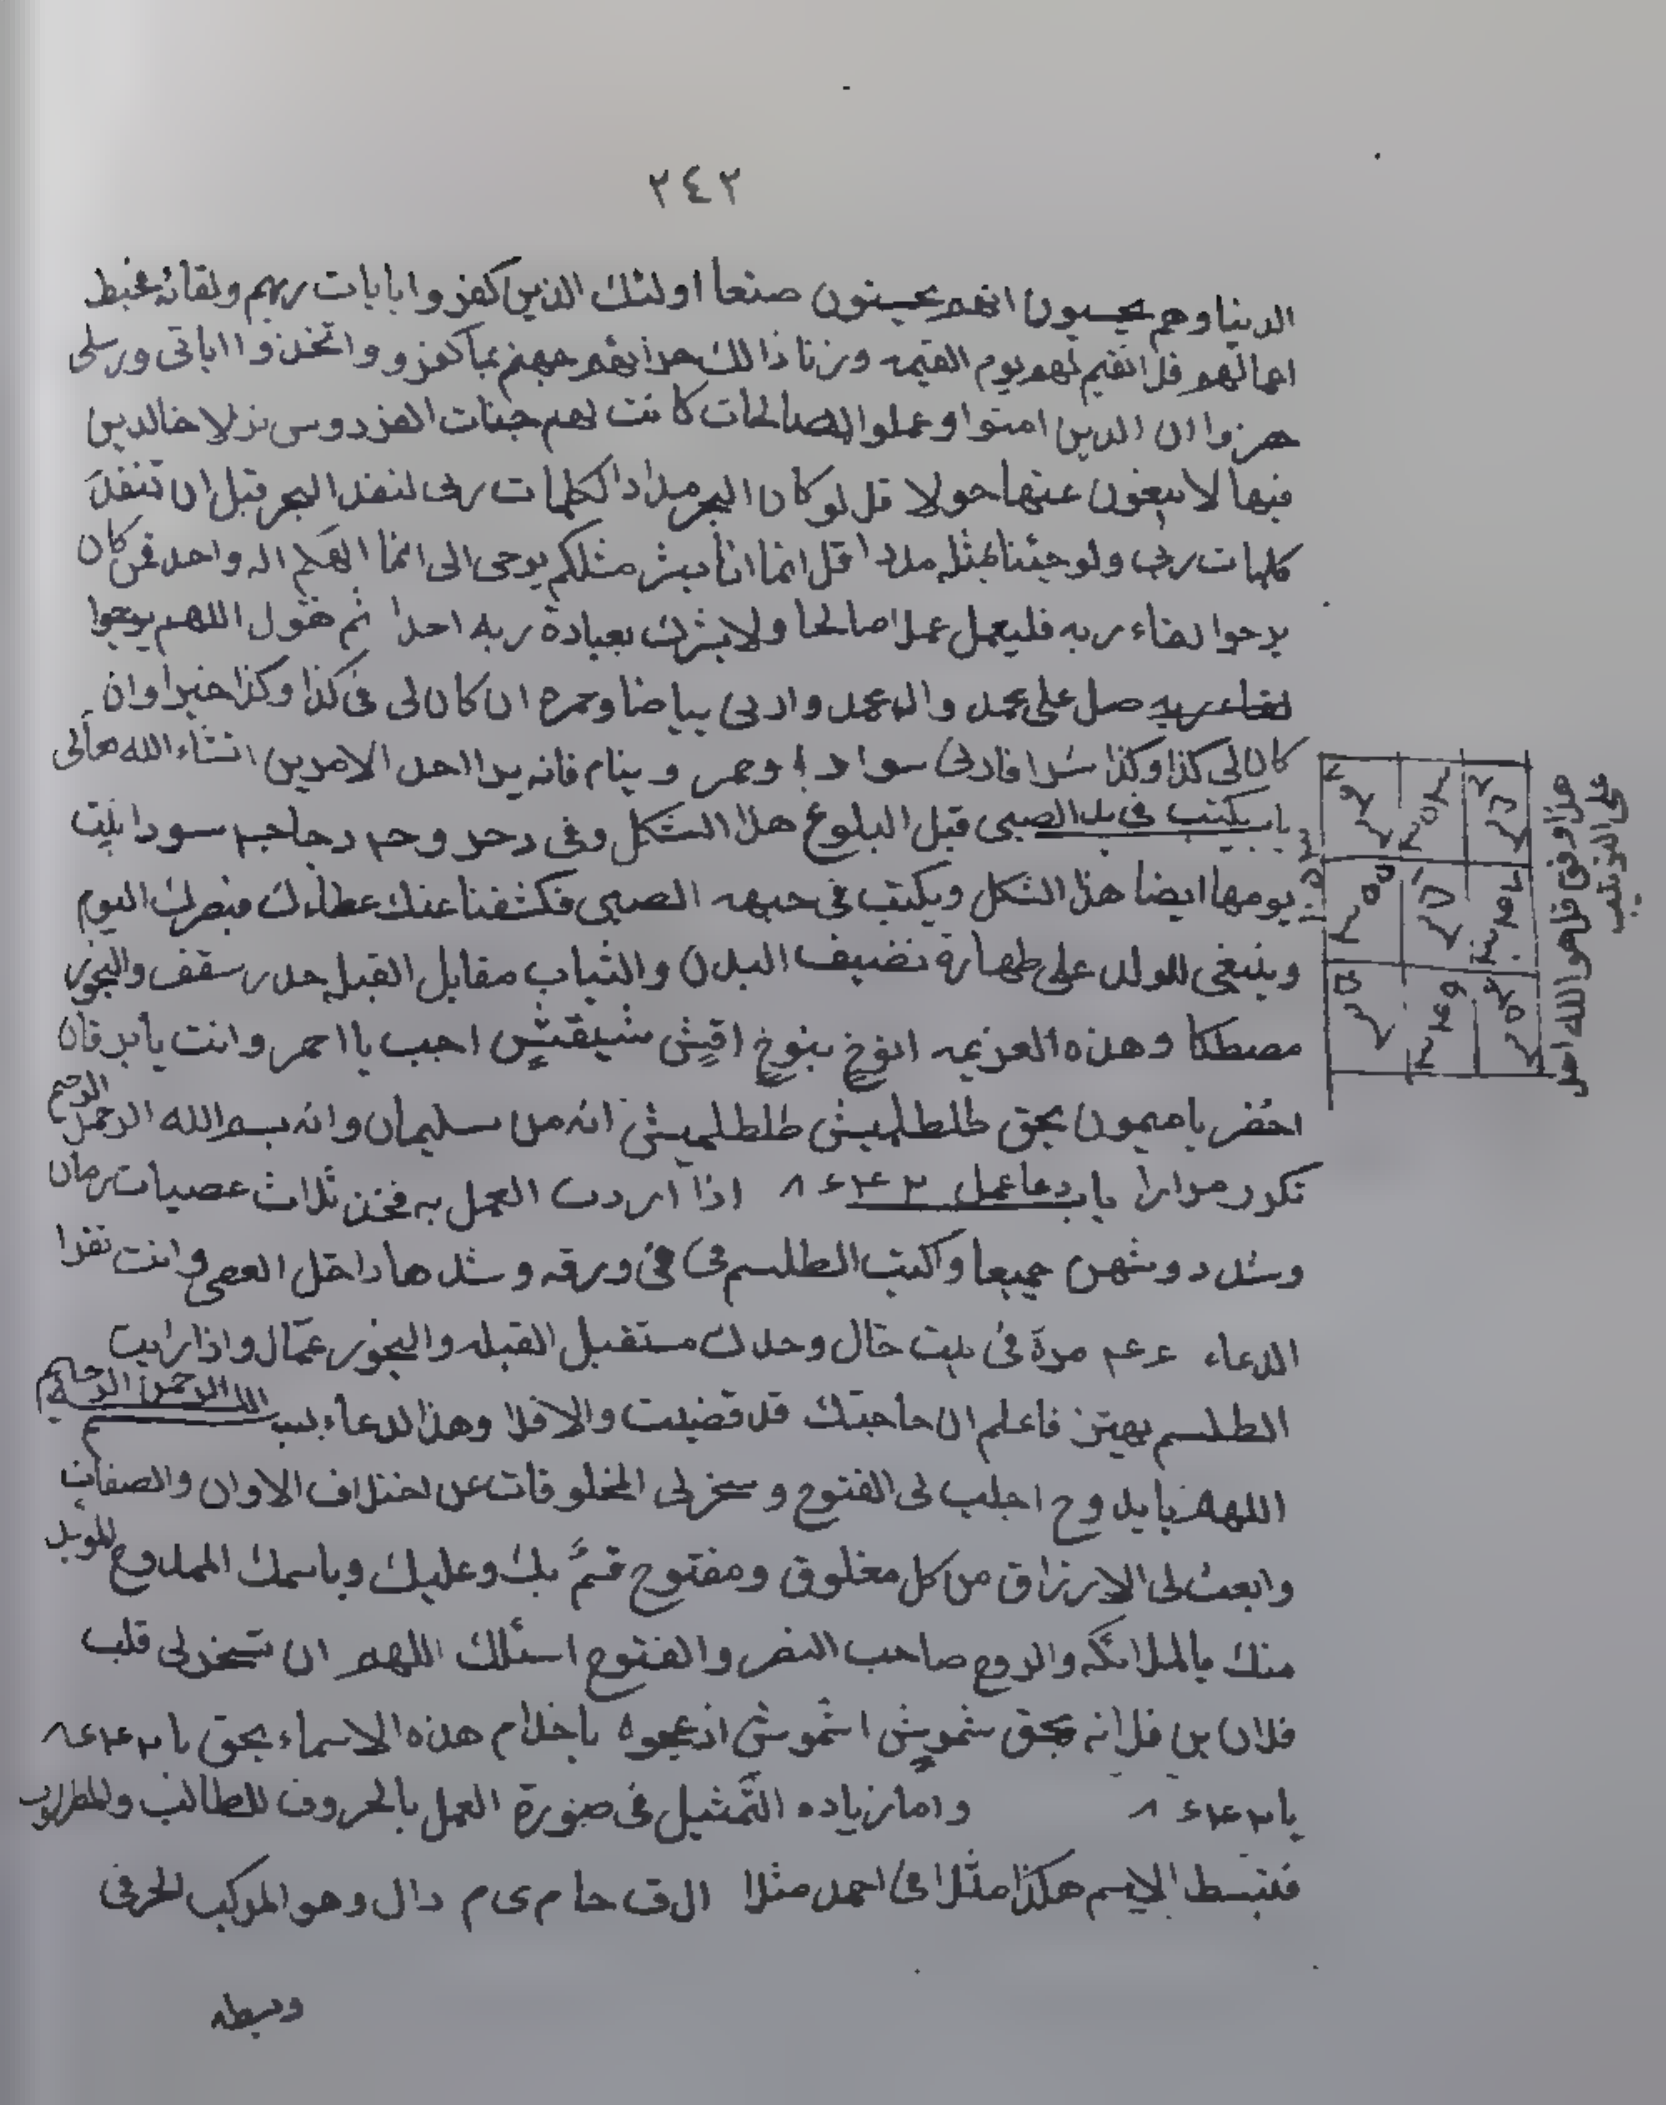 ٢٤٢
الدنيا وهم يحسبون انهم يحسنون صنعا اولئك الذين كفروا بايات ربهم ولقائه فحبط
اعمالهم فلا نقيم لهم يوم القيمه وزنا ذالك جزائهم جهنم بما كفرو واتخذوا اياتى ورسلى
هزوا ان الدين امنوا وعملوا الصالحات كانت لهم جنات الفردوس نزلا خالدين
فيها لا يبغون عنها حولا قل لو كان البحر مدادا لكلمات ربى لنفد البحر قبل ان تنفد
كلمات ربى ولو جئنا بمثله مددا قل انما انا بشر مثلكم يوحى الى انما الهكم اله واحد فمن كان
يرجوا لقاء ربه فليعمل عملا صالحا ولا يشرك بعبادة ربه احدا ثم تقول اللهم يرجوا
لقاء ربه صل على محمد وال محمد وارنى بياضا وحمرة ان كان لى فى كذا وكذا خيرا وان
كان لى كذا وكذا شرا فارنى سوادا وينام فانه يرا احد الامرين انشاء الله تعالى
باب يكتب فى يد الصبى قبل البلوغ هذا الشكل وفى دجاجه سودا بليت
يومها ايضا هذا الشكل ويكتب فى جبهه الصبى فكشفنا عنك عطاءك فبصرك اليوم
وينبغى للولد على طهارة نضيف البدن والثياب مقابل القبله سقف والبخور
مصطكا وهذه العزيمه انوخ بنوخ اقيش شيقتش اجب يا احمر وانت يا برقان
احضر يا ميمون بحق طلطلميش طلطلميش انه من سليمان وانه بسم الله الرحمن الرحيم
تكرر مرارا باب دعا عمل ٨٦٤٢ اذا اردت العمل به فخذ ثلاث عصيات رمان
وشد روسهن جميعا واكتب الطلسم فى فى ورقه وشدها داخل العصى وانت تقرا
الدعاء مرة فى بيت خال وحدك مستقبل القبله والبخور عمّال واذا رايت
الطلسم يهتز فاعلم ان حاجتك قد قضيت والا فلا وهذا لدعاء بسم الله الرحمن الرحيم
اللهم يا بدوح اجلب لى الفتوح وسخر لى المخلوقات عن اختلاف الاوان والصفات
وابعث لى الارزاق من كل مغلوق ومفتوح قسمٌ بك وعليك وباسمك الممدوح المويد
منك بالملائكه والروح صاحب النصر والفتوح اسئلك اللهم ان تسخر لى قلب
فلان بن فلانه بحق شموش اشموش ازعجوه يا خدام هذه الاسماء بحق يا ٨٦٤٢
يا ٨٦٤٢ واما زياده التمثيل فى صورة العمل بالحروف للطالب والمطلوب
فتبسط الاسم هكذا مثلا فى احمد مثلا ال ف حا م ى م دال وهو المركب الحرفى
وبسطه
هذا وفق قل هو الله احد
على الترتيب